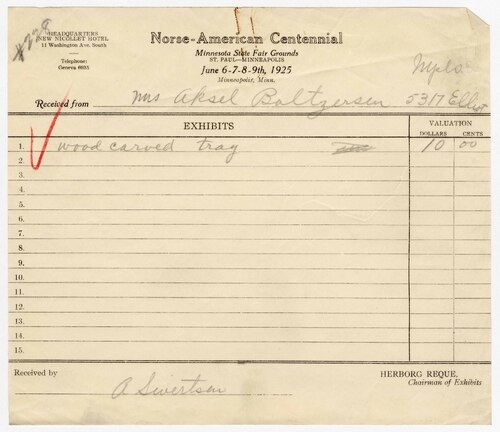 #228
HEADQUARTERS
NEW NICOLLET HOTEL
11 Washington Ave. South
Telephone:
Geneva 6935
Norse-American Centennial
Minnesota State Fair Grounds
ST. PAUL—MINNEAPOLIS
June 6-7-8-9th, 1925
Minneapolis, Minn.
Mpls.
Received from Mrs Aksel Baltzersen 5317 Elliot
EXHIBITS
VALUATION
DOLLARS CENTS
1. wood carved tray 10 00
2.
3.
4.
5.
6.
7.
8.
9.
10.
11.
12.
13.
14.
15.
Received by
A Sivertsen
HERBORG REQUE,
Chairman of Exhibits